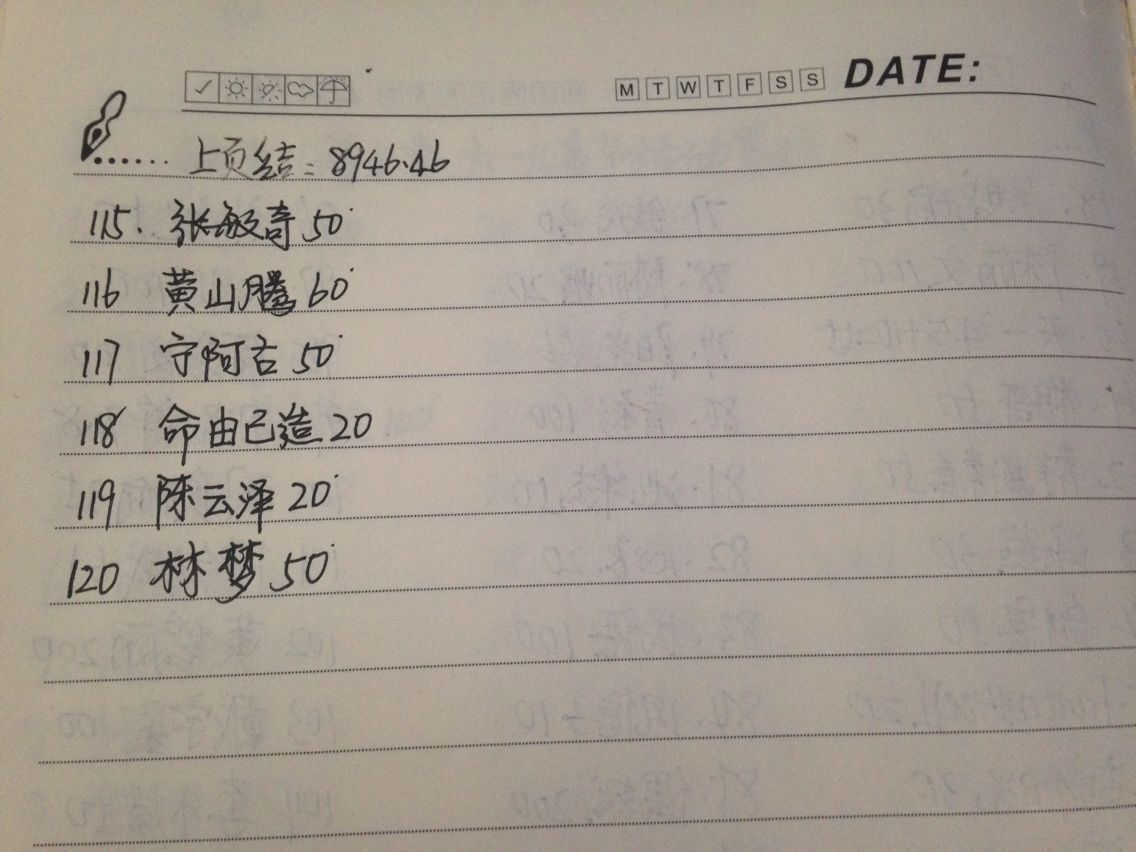 M T W T F S S DATE:
上页结：8946.46
115. 张敏奇 50
116 黄山腾 60
117 守阿古 50
118 命由己造 20
119 陈云泽 20
120 林梦 50